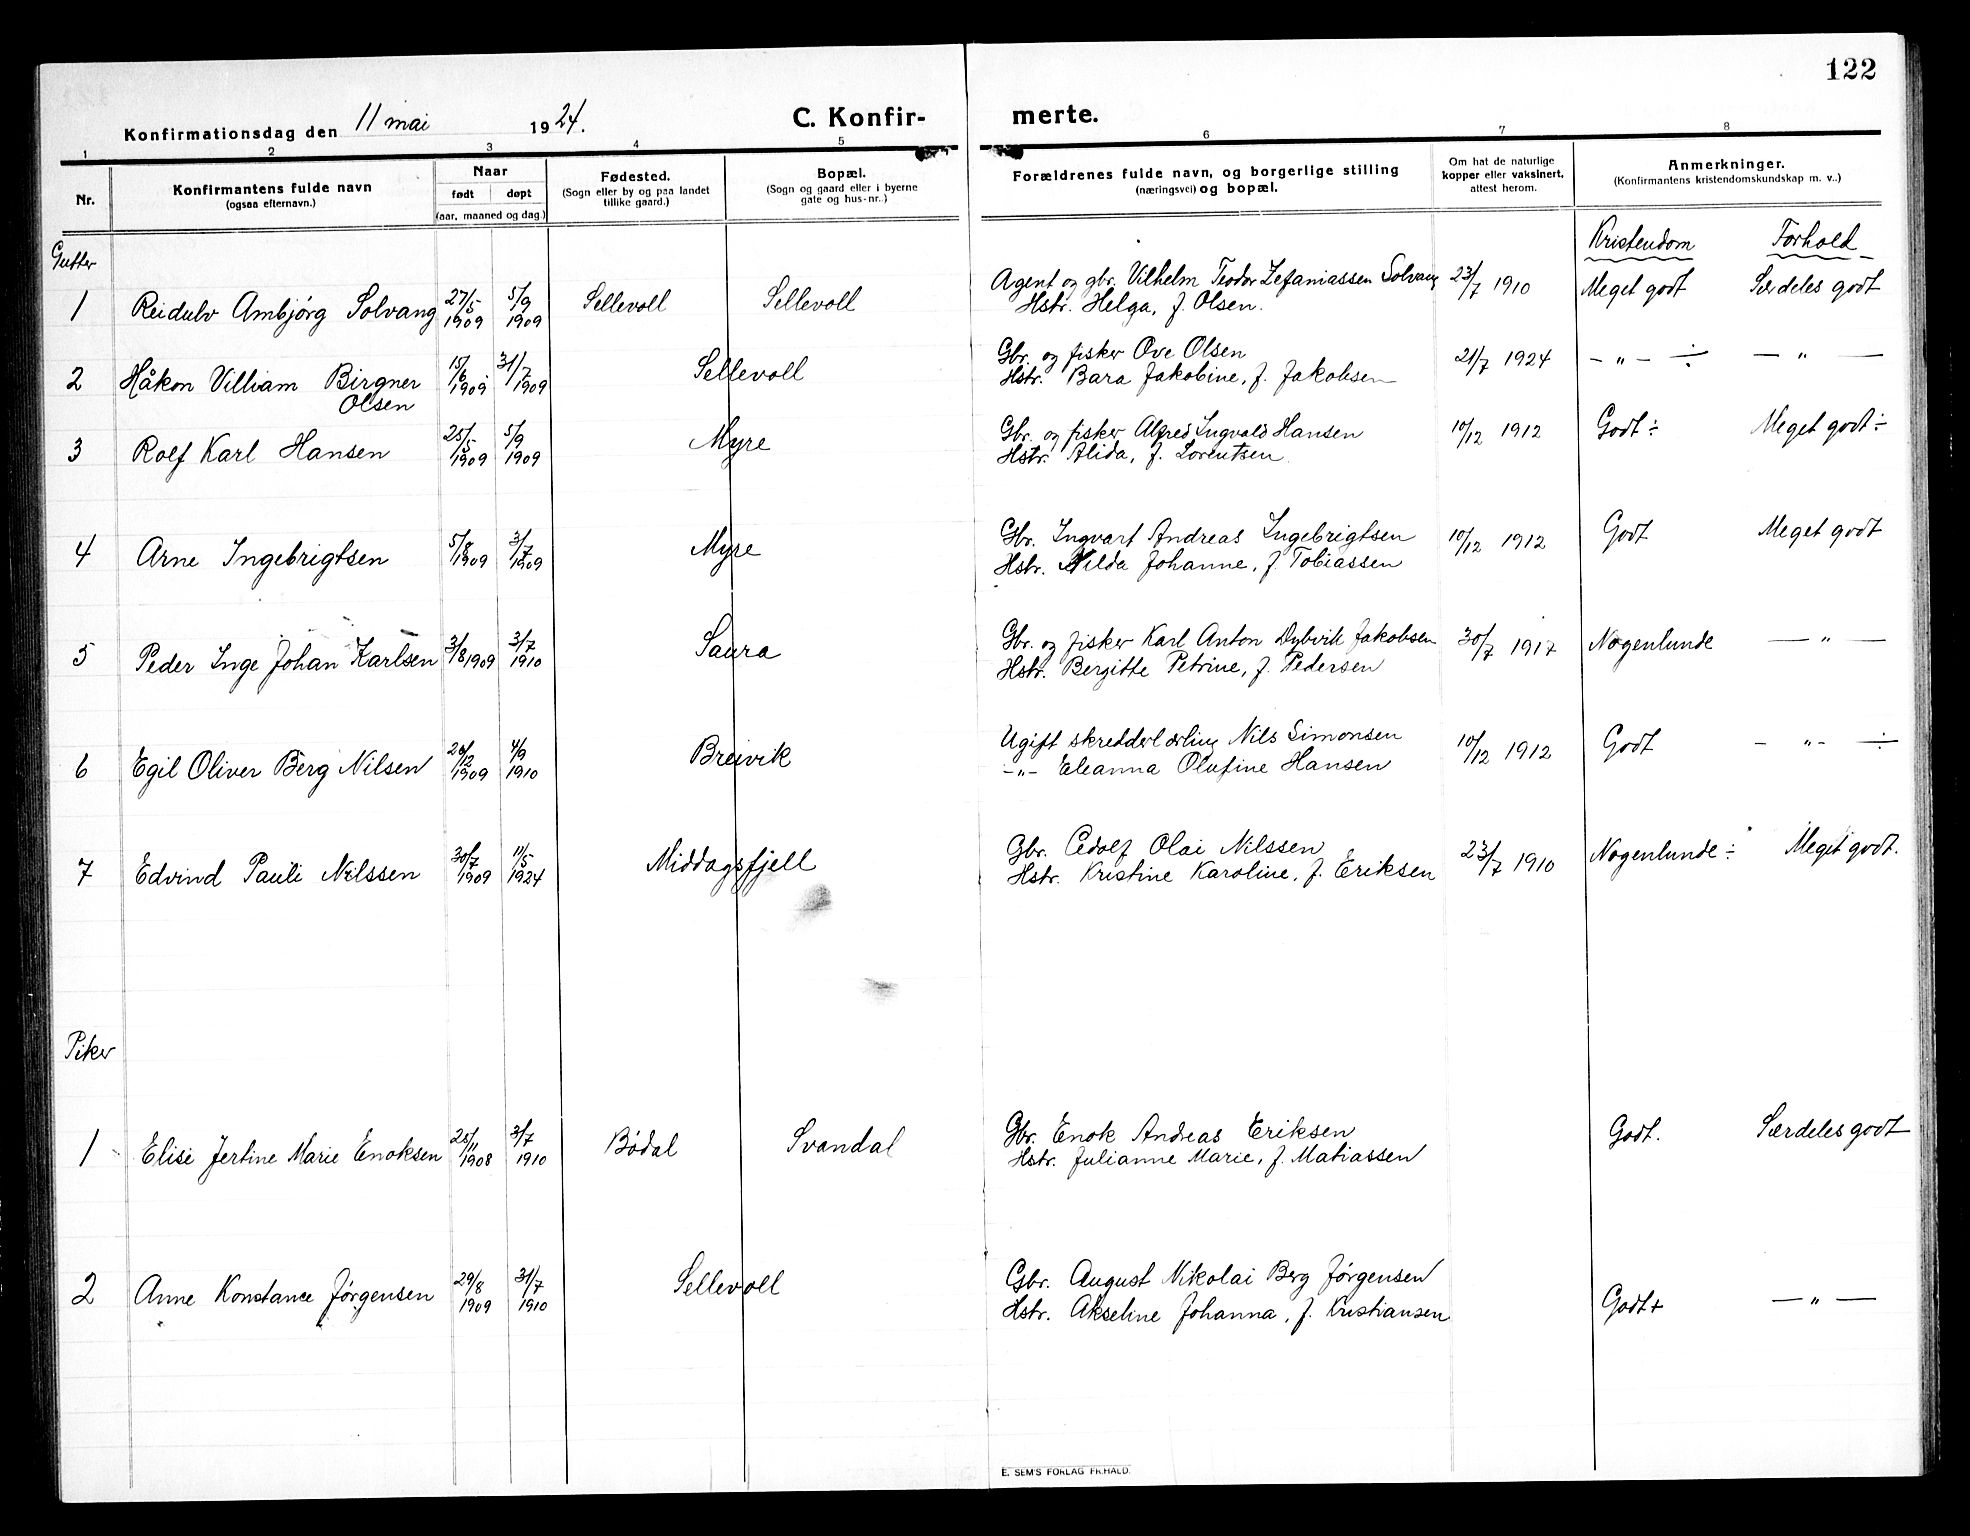 122
Konfirmationsdag den 11 mai 1924.
C. Konfir-
merte.
1 2 3 4 5 6 7 8
Nr.
Konfirmantens fulde navn
(ogsaa efternavn.)
Naar
født døpt
(aar, maaned og dag.)
Fødested.
(Sogn eller by og paa landet
tillike gaard.)
Bopæl.
(Sogn og gaard eller i byerne
gate og hus-nr.)
Forældrenes fulde navn, og borgerlige stilling
(næringsvei) og bopæl.
Om hat de naturlige
kopper eller vaksinert,
attest herom.
Anmerkninger.
(Konfirmantens kristendomskundskap m. v..)
Gutter
Kristendom Forhold
1 Reidulv Ambjørg Solvang 27/5 1909 5/9 1909 Sellevoll Sellevoll
Agent og gbr. Vilhelm Teodor Zefaniassen Solvang 23/7 1910 Meget godt Særdeles godt
Hstr. Helga, f. Olsen.
2 Håkon Villiam Birgner 15/6 1909 31/7 1909 Sellevoll
Olsen
Gbr. og fisker Ove Olsen 21/7 1924 – " – ÷ — " —
Hstr. Bara Jakobine, f. Jakobsen
3 Rolf Karl Hansen 25/5 1909 5/9 1909 Myre
Gbr. og fisker Alfred Ingvald Hansen 10/12 1912 Godt ÷ Meget godt ÷
Hstr. Alida, f. Lorentsen
4 Arne Ingebrigtsen 1909 3/7 1909 Myre
Gbr. Ingvart Andreas Ingebrigtsen 10/12 1912 Godt Meget godt
Hstr. Hilda Johanne, f. Tobiassen
5 Peder Inge Johan Karlsen 3/8 1909 3/7 1910 Saura
Gbr. og fisker Karl Anton Dybvik Jakobsen 30/7 1917 Nogenlunde — " —
Hstr. Bergitte Petrine, f. Pedersen
6 Egil Oliver Berg Nilsen 1909 4/9 1910 Breivik
Ugift skredderlærling Nils Simonsen 10/12 1912 Godt – " – ÷
–"– Eleanna Olufine Hansen
7 Edvind Pauli Nilssen 30/7 1909 11/5 1924 Middagsfjell
Gbr. Edolf Olai Nilssen 23/7 1910 Nogenlunde ÷ Meget godt.
Hstr. Kristine Karoline, f. Eriksen
Piker
1 Elise Jertine Marie Enoksen 25/11 1908 3/7 1910 Bødal Svandal
Gbr. Enok Andreas Eriksen Godt. Særdeles godt
Hstr. Julianne Marie, f. Matiassen
2 Anne Konstance Jørgensen 29/8 1909 31/7 1910 Sellevoll
Gbr. August Nikolai Berg Jørgensen Godt+ — " —
Hstr. Akseline Johanna, f. Kristiansen
E. SEM'S FORLAG FR.HALD.